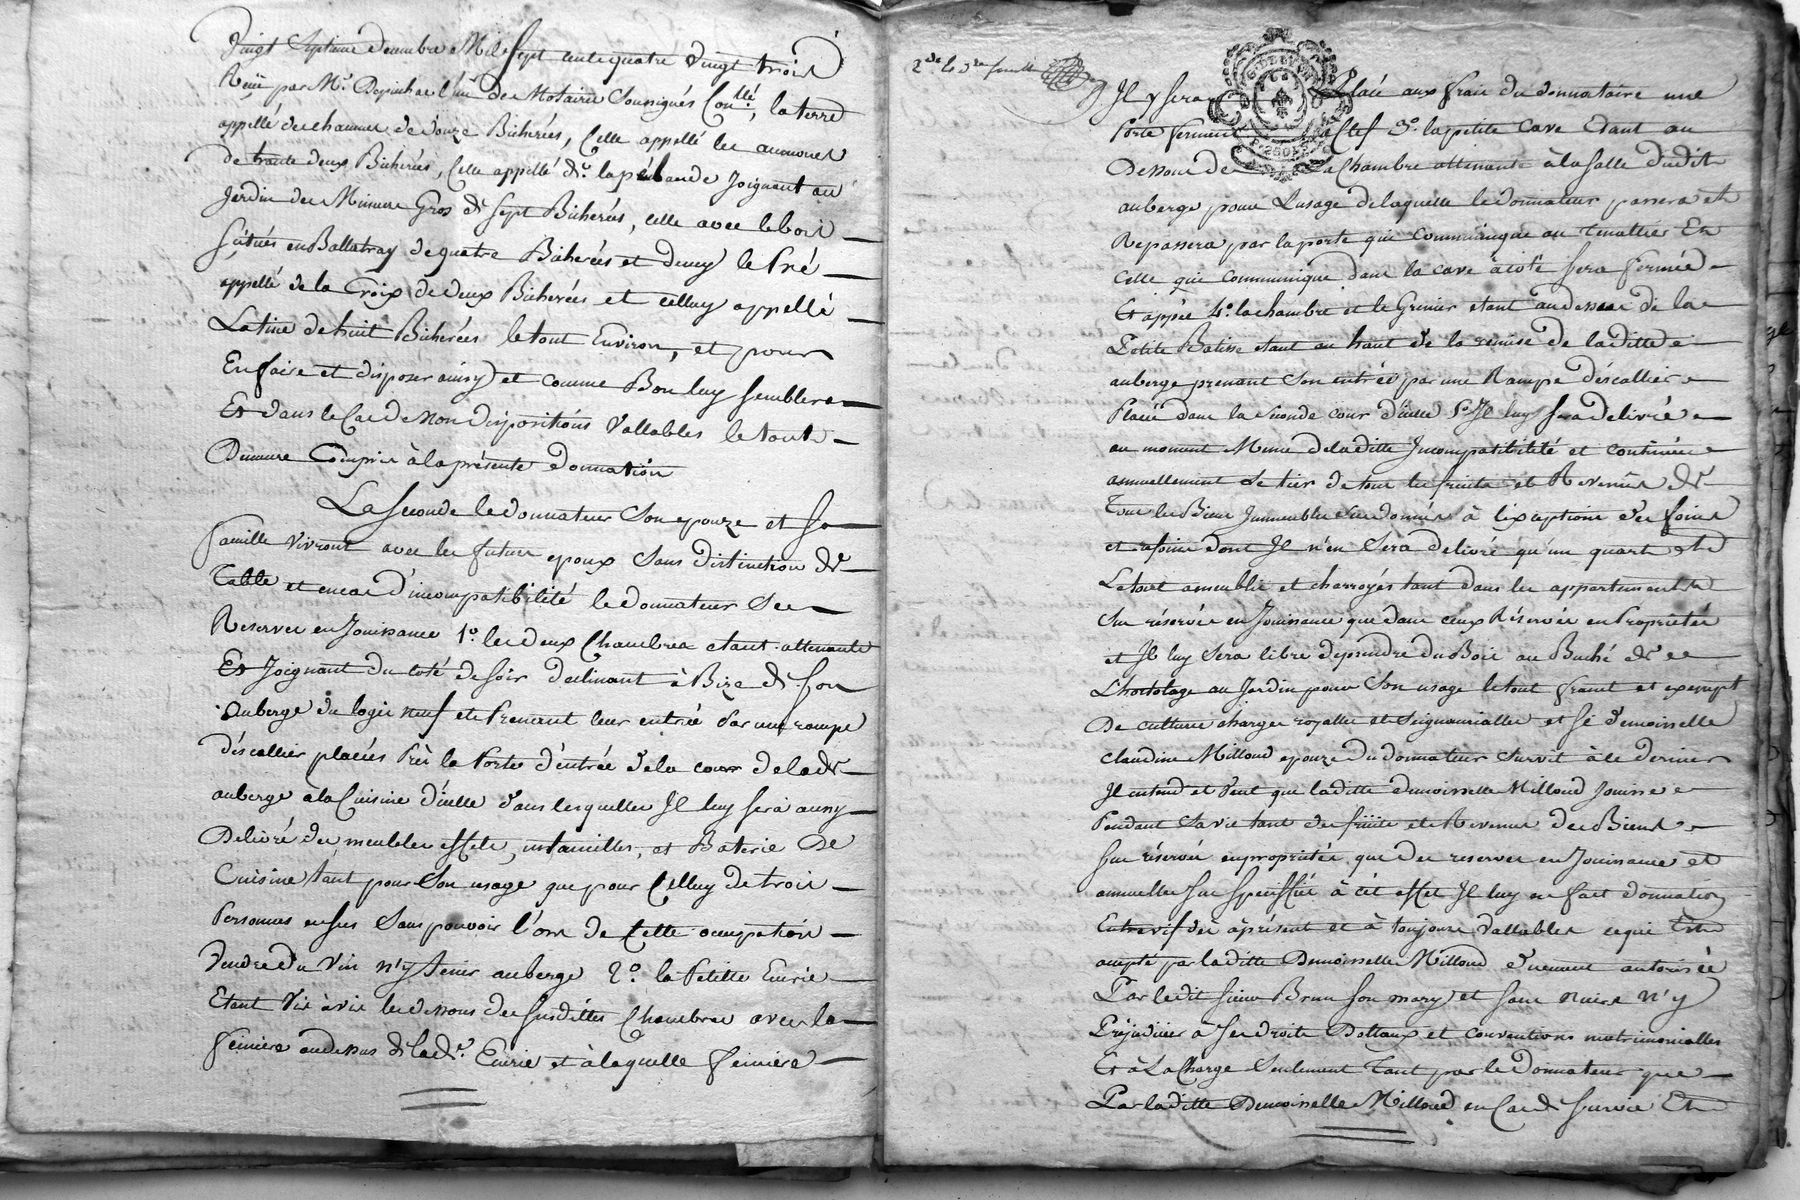 Vingt Septieme decembre Mil Sept cent quatre vingt trois
Reçu par Mr. Depinhac l'un des Notaires Soussignés Conlle, la terre
appellé des chaumes de douze Bicherées, Celle appellé les aumones
de trante deux Bicherées, Celle appellé dt. la péebande Joignant au
Jardin des Mineure Gros de Sept Bicherées, celle avec le bois
Scitués en Ballatray de quatre Bicherées et demy le Pré
appellé de la Croix de deux Bicherées et celluy appellé
La tine de huit Bicherées le tout Environ, et pour
En faire et disposer ainsy et comme Bon luy semblera
Et dans le Cas de Non dispositions Vallables le tout
Demeure Compris à la présente donnation
La Seconde le donnateur Son epouze et Sa
famille vivront avec les futurs epoux Sans distinction de
Table et en cas d'incompatibilité le donnateur Se
Reserve en Jouissance 1º. les deux Chambres etant attenante
Et Joignant du coté de Soir declinant à Bize de Son
Auberge du logis neuf et Prenant leur entrée Par une rampe
d'éscallier placés Près la Porte d'entrée de la cour de ladte
auberge à la Cuisine d'icelle dans lesquelles Il luy Sera aussy
Délivré des meubles effets, ustancilles, et Baterie De
Cuisine tant pour Son usage que pour Celluy de trois
Personnes en sus Sans pouvoir lors de Cette occupation
Vendre du Vin n'y tenir auberge 2º. la Petitte Ecurie
Etant Vis à vis le dessous des Susdittes Chambres avec la
feniere au dessus de ladte. Ecurie et à laquelle feniere
2de. & 3me feuille
Il y Sera Placé aux frais du donnataire une
Porte fermant à Clef 3º. la petite Cave Etant au
Dessous de la Chambre attenante à la Salle dudit
auberge pour L'usage de laquelle le donnateur passera et
Repassera par la porte qui communique au tinallier Et
Celle qui communique dans la cave à coté Sera fermée
Et appée 4º. la chambre et le Grenier etant au dessus de la
Petite Batisse etant au haut de la remise de laditte
auberge prenant Son entrée par une Rampe d'éscallier
Placée dans la Seconde cour d'icelle 5º Il luy Sera delivré
au moment Meme de laditte Incompatibilité et continuée
annuellement Le tier de tous les fruits et Revenus de
Tous les Biens Immeubles Susdonnés à l'éxception des foins
et rasine dont Il n'en Sera délivré qu'un quart et
Le tout assemblé et charroyés tant dans les appartements
Sus réservés en Jouissance que dans ceux Réservés en Proprieté
et Il luy Sera libre de prendre du Bois au Buché de
L'hortolage au Jardin pour Son usage le tout franc et exempt
De culture charges royalles et Seigneurialles et Si demoiselle
Claudine Milloud epouze du donnateur Survit à ce dernier
Il entend et Veut que laditte demoiselle Milloud Jouisse
Pendant Sa vie tant des fruits et Revenus des Biens
Sus réservés en proprieté que des reserves en Jouissance et
annuelles Sus Spéciffiés à cét effet Il luy en fait donnation
Entrevif dès à présent et à toujours Vallables ce qui Est
accepté par laditte Demoiselle Milloud d'uement autorisée
Par ledit Sieur Brun Son mary et Sans Nuire n'y
Préjudicier à Ses droits Dottaux et conventions matrimonialles
Et à La Charge Seulement Tant par le Donnateur que
Par laditte Demoiselle Milloud en Cas de Survie Et